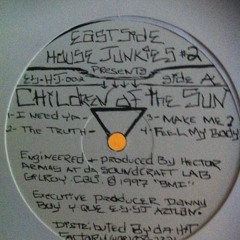 EAST SIDE
HOUSE JUNKIES #2
PRESENTS
ES-HJ.002 SIDE A
CHILDREN OF THE SUN
1- I NEED YOU 3- MAKE ME?
2- THE TRUTH 4- FEEL MY BODY
ENGINEERED & PRODUCED BY HECTOR
ARMAS AT DA SOUNDCRAFT LAB
GILROY CAL. © 1997 "BMI"
EXECUTIVE PRODUCER DANNY
BOY Y QUE ES-SJ AZTLAN.
DISTRIBUTED BY DA HIT
FACTORY